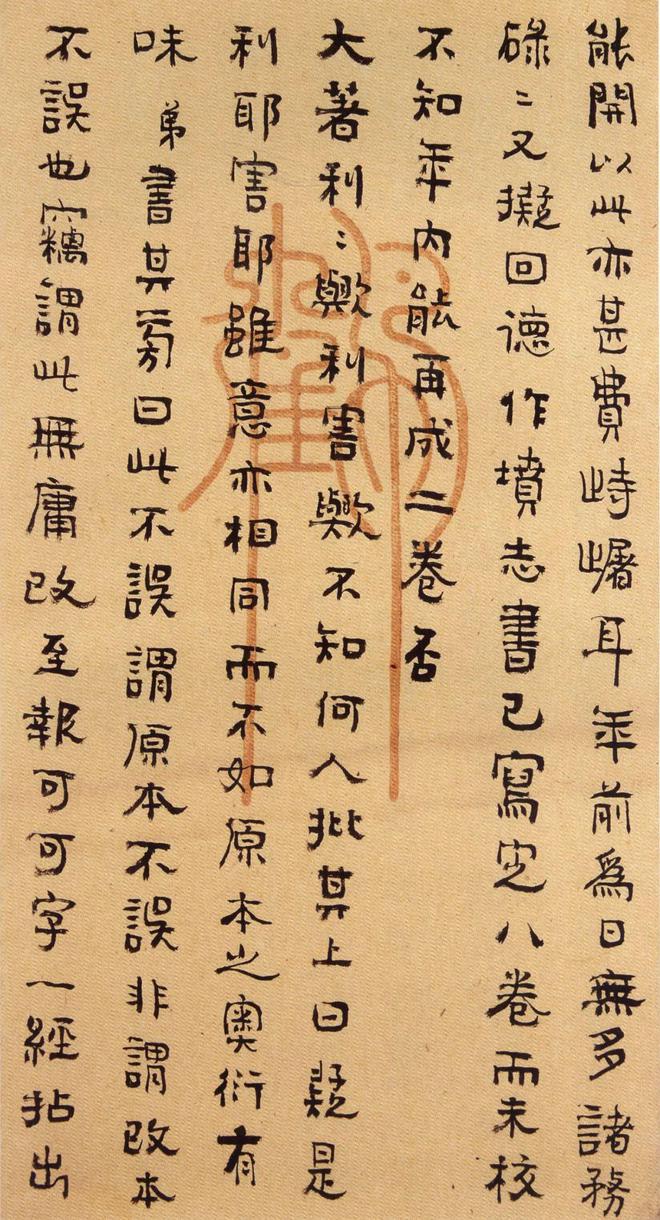 能開以此亦甚費峙𡺾耳年前為日無多諸務
碌〻又擬回德作墳志書已寫定八卷而未校
不知年內能再成二卷否
大著利〻歟利害歟不知何人批其上曰疑是
利耶害耶雖意亦相同而不如原本之奧衍有
味弟書其旁曰此不誤謂原本不誤非謂改本
不誤也竊謂此無庸改至報可可字一經拈出